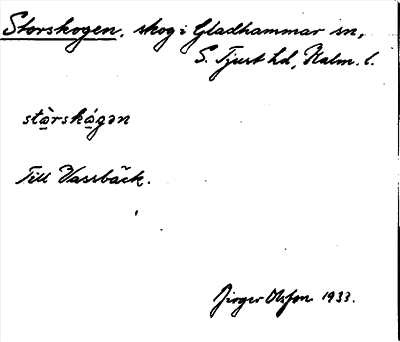 Storskogen, skog i Gladhammar sn,
S. Tjust hd, Kalm. l.
stạ̀rskạ́gən
Till Vassbäck.
Birger Olsson 1933.